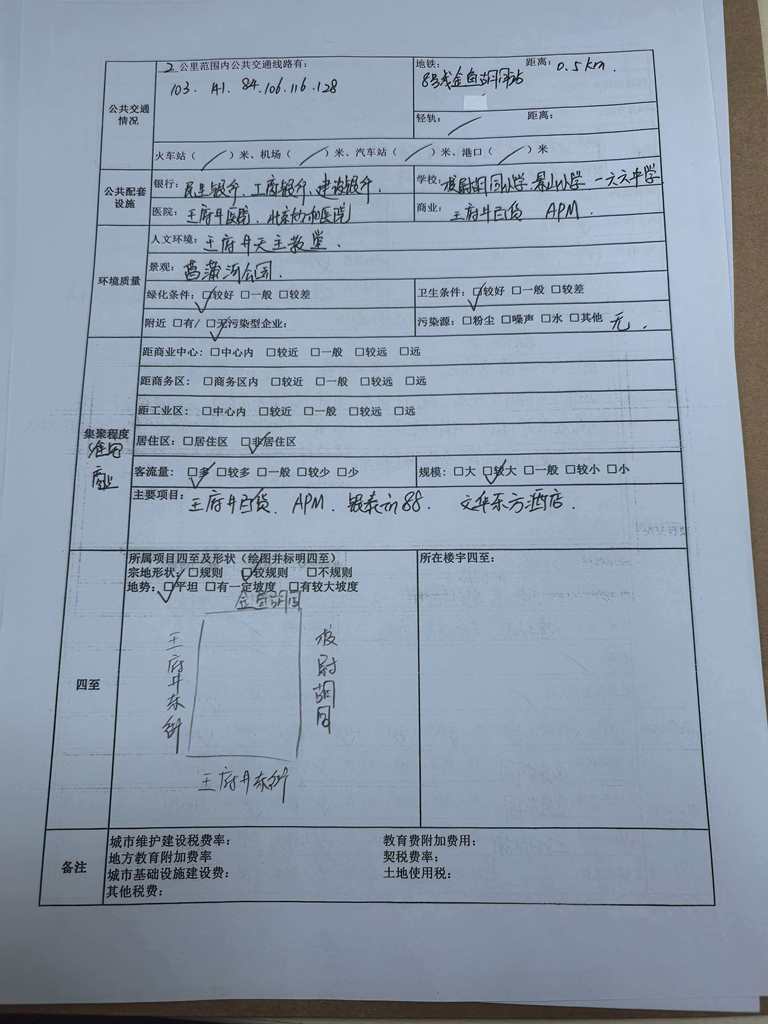 公共交通情况
2 公里范围内公共交通线路有:
103. 41. 84. 106. 116. 128
地铁: 距离: 0.5km.
8号线金鱼胡同站
轻轨: / 距离:
火车站( / )米、机场( / )米、汽车站( / )米、港口( / )米
公共配套设施
银行: 民生银行、工商银行、建设银行.
学校: 校尉胡同小学. 景山小学. 一六六中学
医院: 王府井医院、北京协和医院
商业: 王府井百货 APM.
环境质量
人文环境: 王府井天主教堂.
景观: 菖蒲河公园.
绿化条件: ☑较好 □一般 □较差
卫生条件: ☑较好 □一般 □较差
附近 □有/ ☑无污染型企业:
污染源: □粉尘 □噪声 □水 □其他 无.
集聚程度
商业
距商业中心: □中心内 □较近 □一般 □较远 □远
距商务区: □商务区内 □较近 □一般 □较远 □远
距工业区: □中心内 □较近 □一般 □较远 □远
居住区: □居住区 ☑非居住区
客流量: ☑多 □较多 □一般 □较少 □少
规模: □大 ☑较大 □一般 □较小 □小
主要项目: 王府井百货. APM. 银泰in88. 文华东方酒店.
四至
所属项目四至及形状(绘图并标明四至)
宗地形状: □规则 ☑较规则 □不规则
地势: ☑平坦 □有一定坡度 □有较大坡度
金鱼胡同
王府井东街
校尉胡同
王府井东街
所在楼宇四至:
备注
城市维护建设税费率: 教育费附加费用:
地方教育附加费率 契税费率:
城市基础设施建设费: 土地使用税:
其他税费: